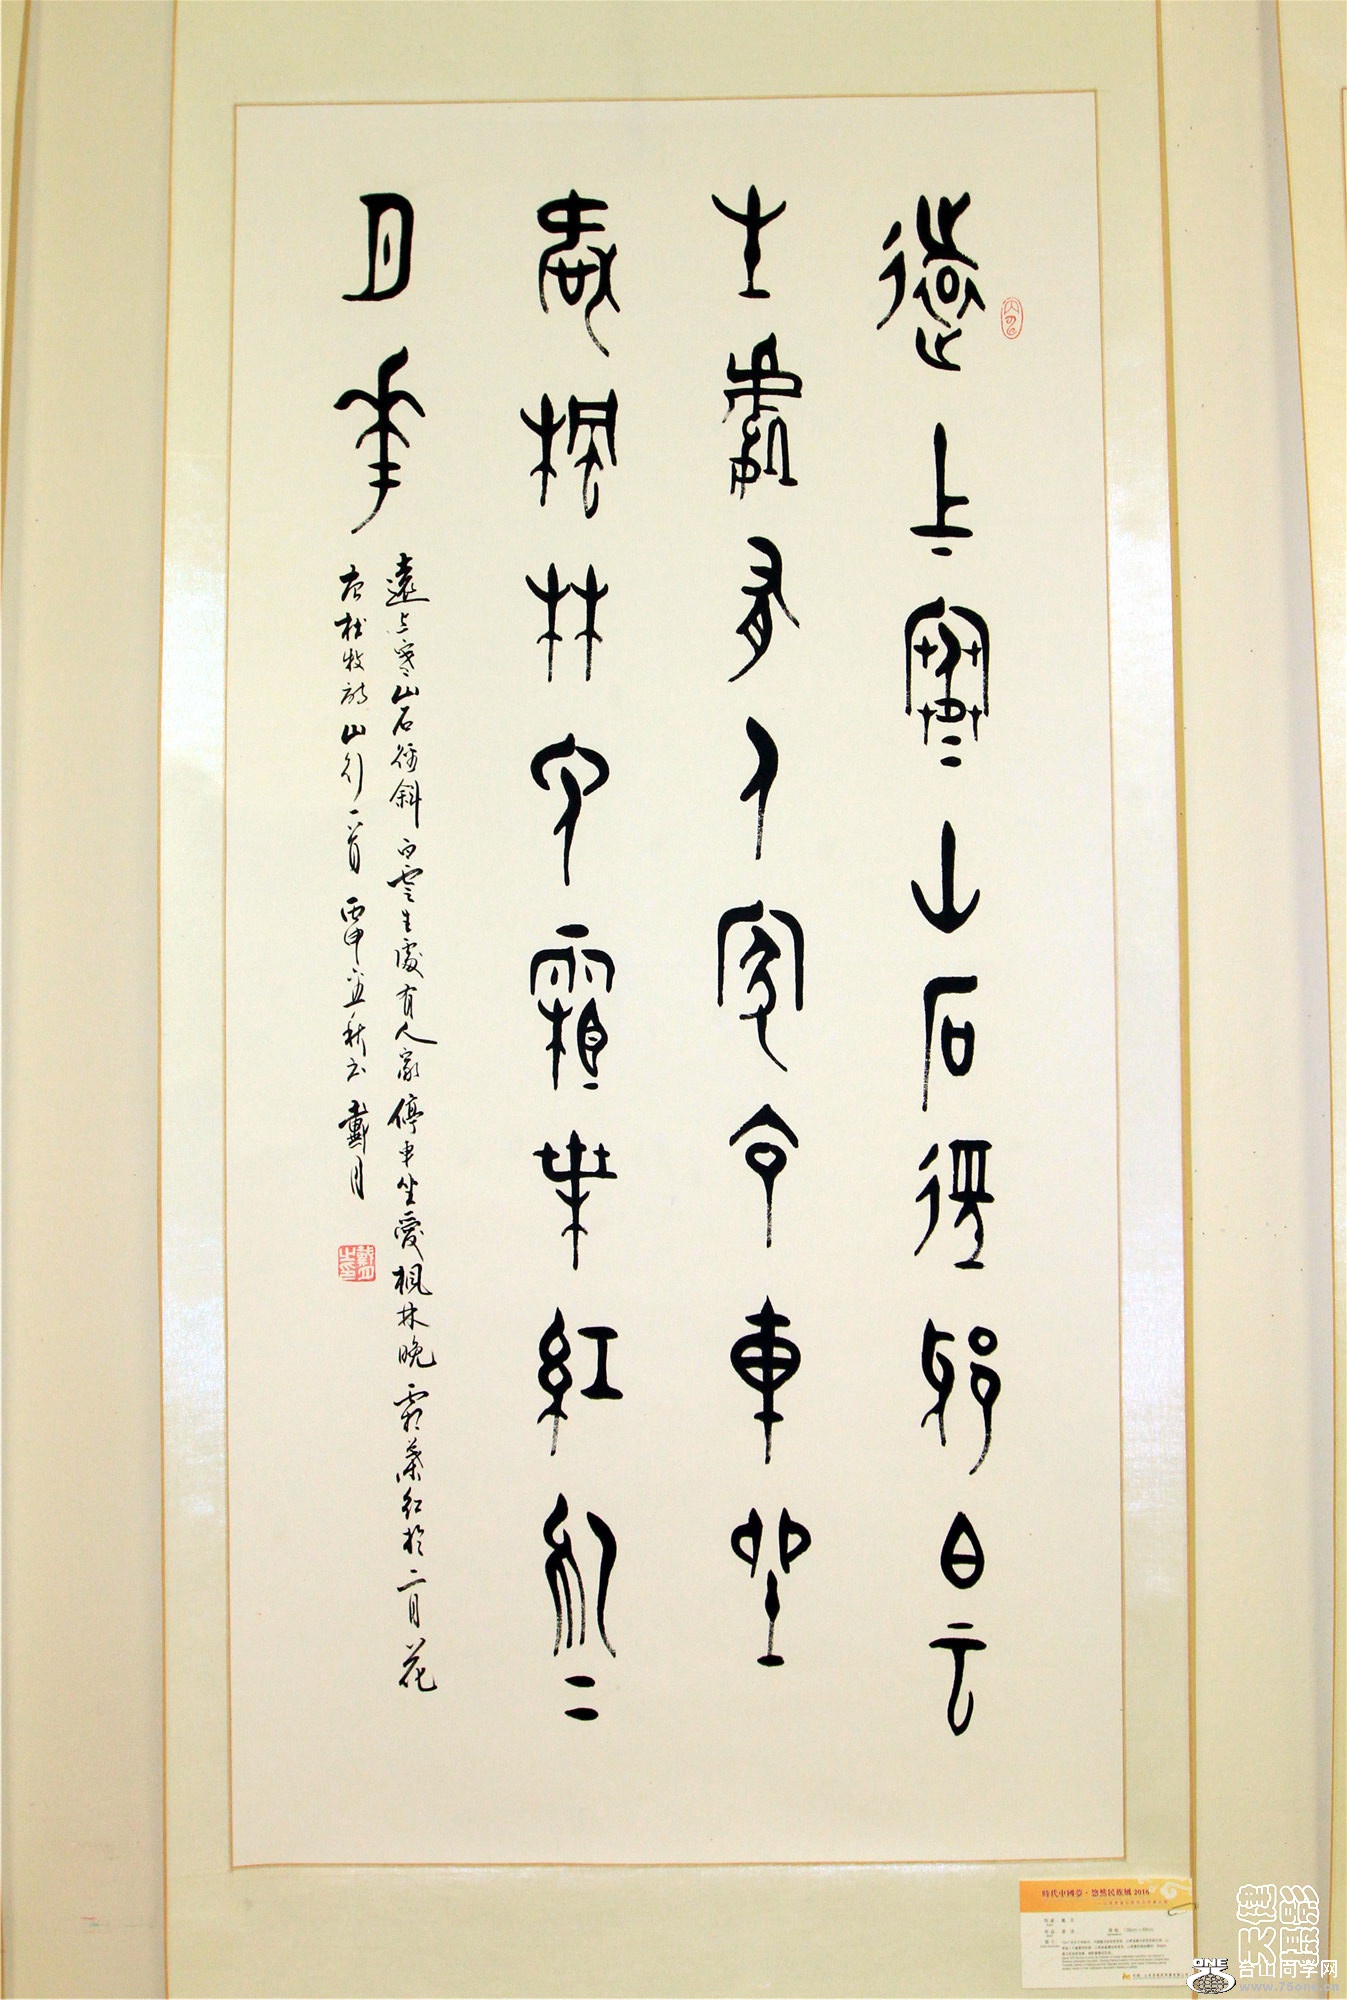 遠上寒山石徑斜白云
生處有人家停車坐
愛楓林晚霜葉紅於二
月花
遠上寒山石徑斜白雲生處有人家停車坐愛楓林晚霜葉紅於二月花
唐杜牧詩山行一首丙申孟秋書戴月
時代中國夢·悠然民族風2016
ONE
台山同学网
www.75one.cn